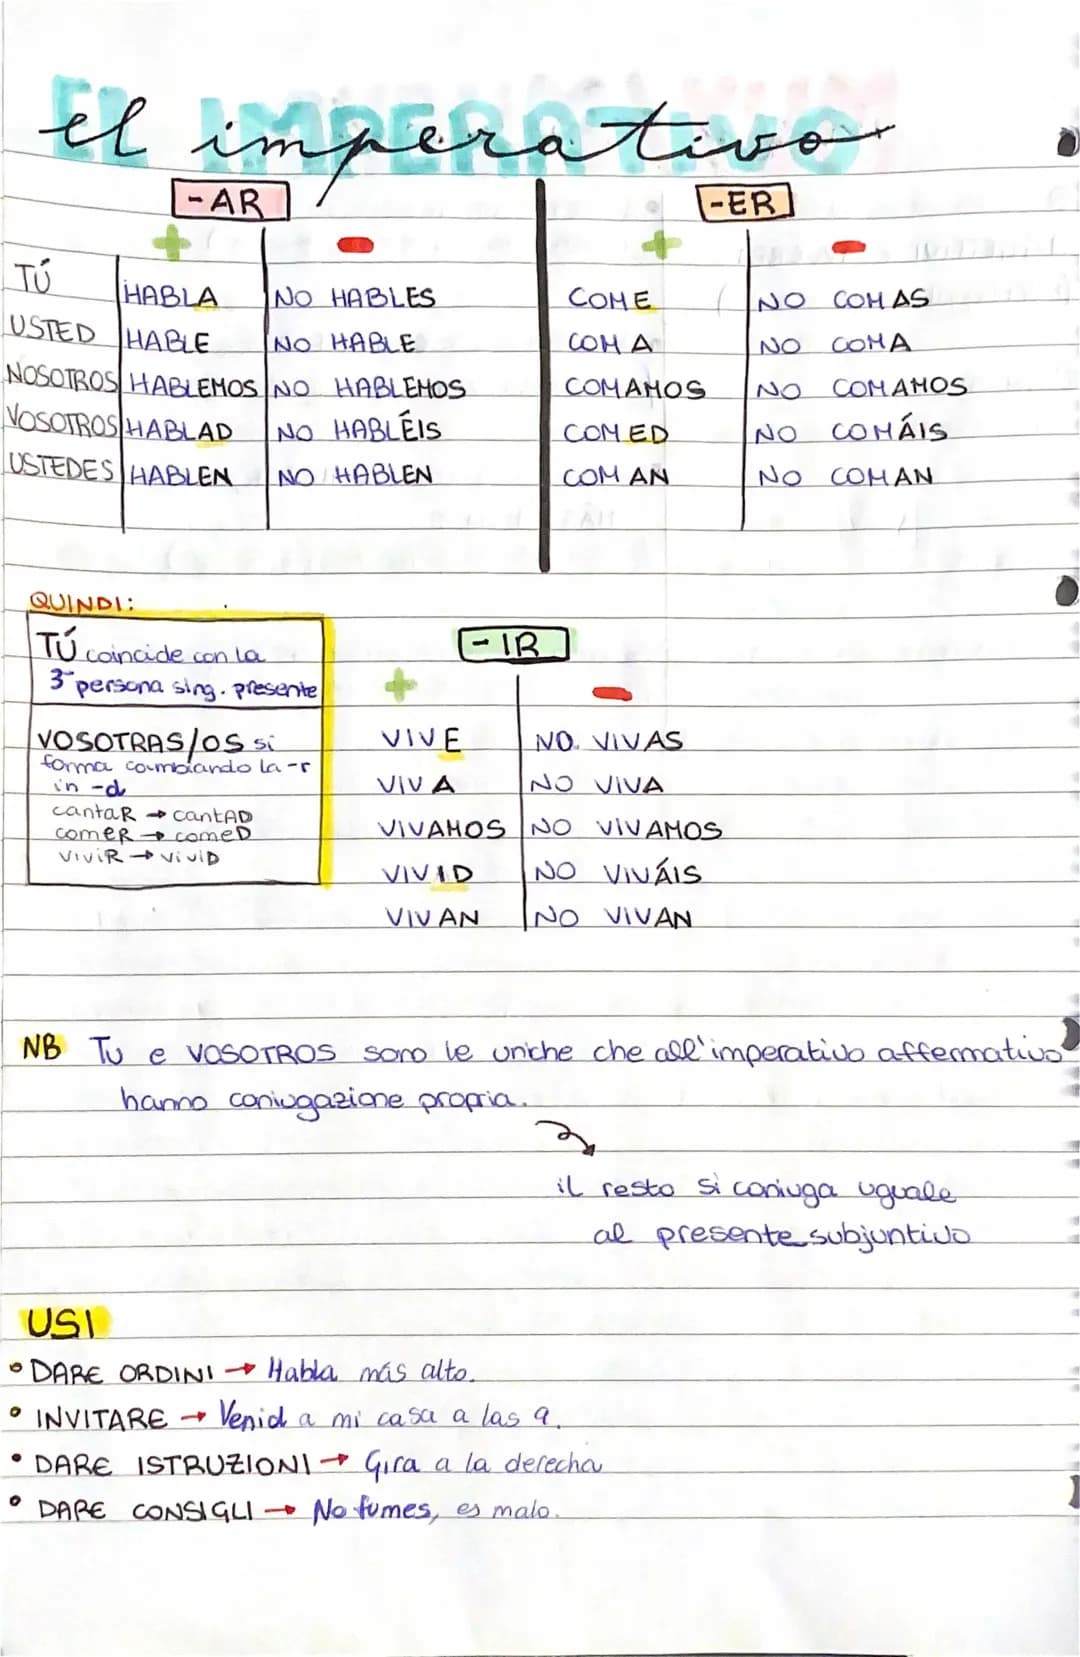 el imperativo
EL IMPERATIVO
-AR -ER
+ - + -
TÚ HABLA NO HABLES COME NO COMAS
USTED HABLE NO HABLE COMA NO COMA
NOSOTROS HABLEMOS NO HABLEMOS COMAMOS NO COMAMOS
VOSOTROS HABLAD NO HABLÉIS COMED NO COMÁIS
USTEDES HABLEN NO HABLEN COMAN NO COMAN
QUINDI:
TÚ coincide con la
3ª persona sing. presente
VOSOTRAS/OS si
forma cambiando la -r
in -d
cantaR → cantAD
comeR → comeD
viviR → viviD
-IR
+ -
VIVE NO VIVAS
VIVA NO VIVA
VIVAMOS NO VIVAMOS
VIVID NO VIVÁIS
VIVAN NO VIVAN
NB Tu e VOSOTROS sono le uniche che all'imperativo affermativo
hanno coniugazione propria.
il resto si coniuga uguale
al presente subjuntivo
USI
• DARE ORDINI → Habla más alto.
• INVITARE → Venid a mi casa a las 9.
• DARE ISTRUZIONI → Gira a la derecha
• DARE CONSIGLI → No fumes, es malo.